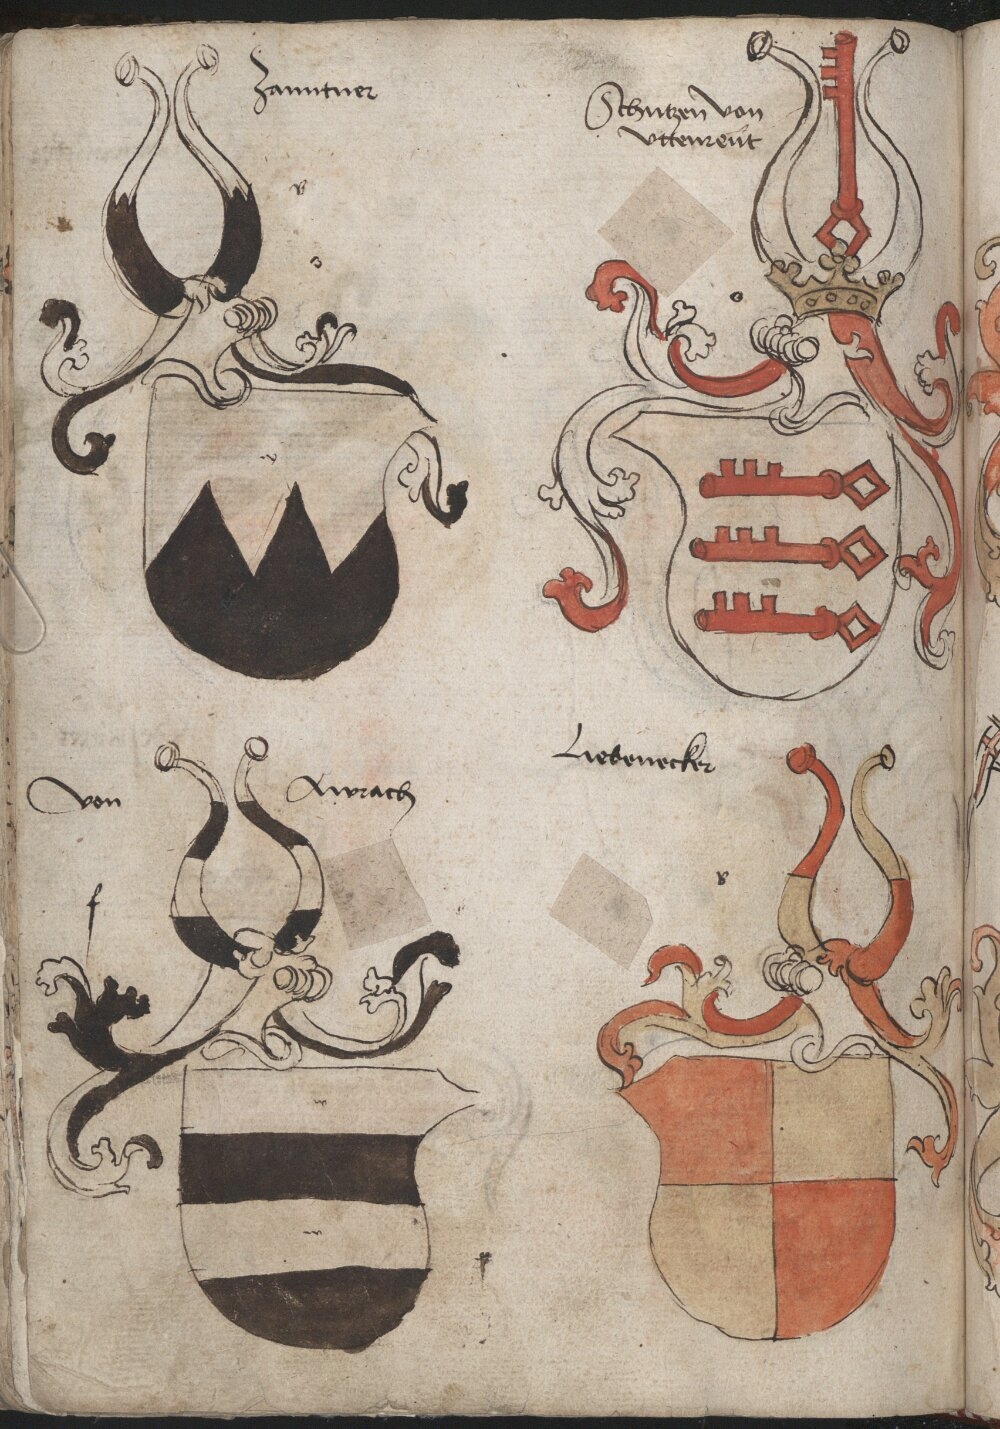 Zanntner
Schutzen von
vttenreut
von Awrach
Liebenecker